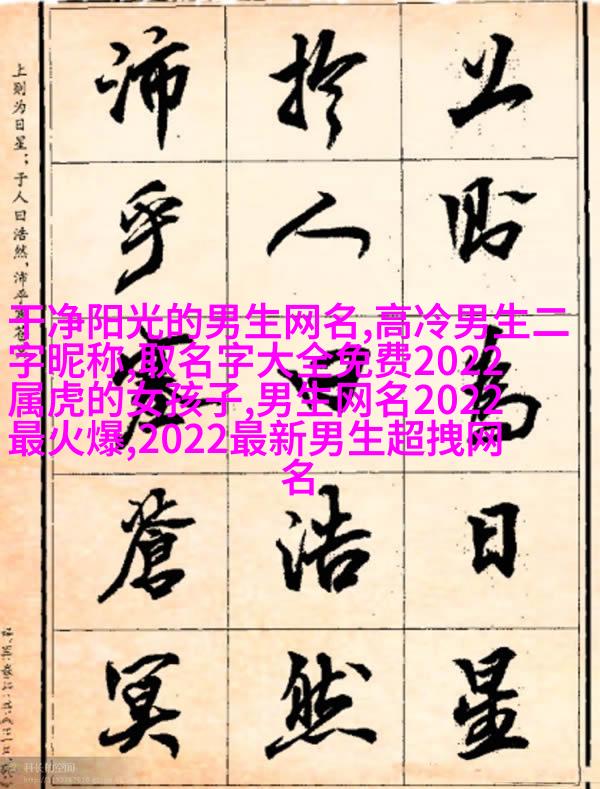 上則為日星
扵人曰浩然
沛乎塞蒼冥
上则为日星；于人曰浩然，沛乎
干净阳光的男生网名,高冷男生二
字昵称,取名字大全免费2022
属虎的女孩子,男生网名2022
最火爆,2022最新男生超拽网
名
科长的空间